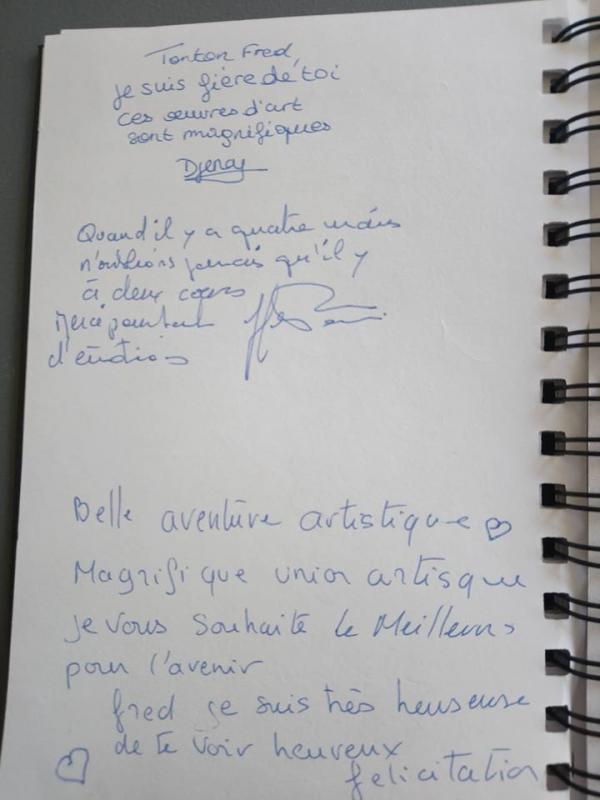 Tonton Fred,
je suis fière de toi
ces œuvres d'art
sont magnifiques
Quand il y a quatre mains
n'oublions jamais qu'il y
a deux cœurs
Merci pour tant
d'émotions
Belle aventure artistique ♡
Magnifique union artisque
je vous souhaite le Meilleurs
pour l'avenir
fred je suis très heureuse
de te voir heureux
♡ felicitation